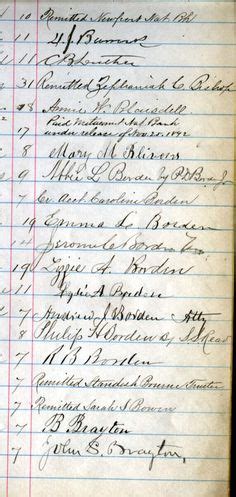 10 Remitted Newport Nat Bk
11
11 C B Luther
31 Remitted Zephaniah C Bishop
Annie H Blaisdell
Paid Metacomet Nat Bank
17 under release of Nov 20. 1892
8 Mary M
9 Abbie L Borden by
7 Caroline Borden
19 Emma L Borden
14 Jerome C Borden
19 Lizzie A. Borden
11 A Borden
7 Andrew J Borden Atty
8 Philip H Borden by S S Read
7 R B Borden
7 Remitted Standish Bourne Trustee
7 Remitted Sarah S Bowen
7 B Brayton
7 John S. Brayton,